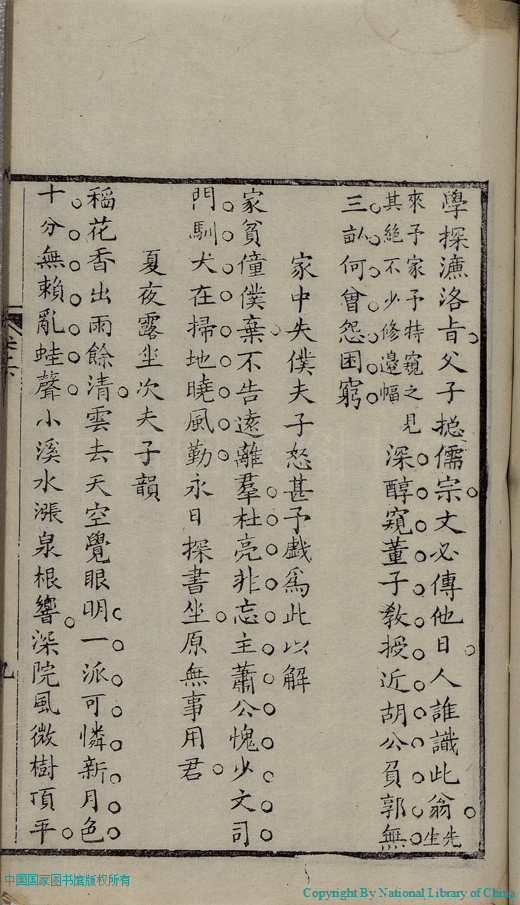 學探濂洛旨父子揔儒宗文必傳他日人誰識此翁先生
來予家予持窺之見
其絕不少修邊幅
深醇窺董子教授近胡公負郭無
三畝何曾怨困窮
家中失僕夫子怒甚予戲爲此以解
家貧僮僕棄不告遠離羣杜亮非忘主蕭公愧少文司
門馴犬在掃地曉風勤永日探書坐原無事用君
夏夜露坐次夫子韻
稻花香出雨餘清雲去天空覺眼明一派可憐新月色
十分無賴亂蛙聲小溪水漲泉根響深院風微樹頂平
九
中国国家图书馆版权所有
Copyright By National Library of China